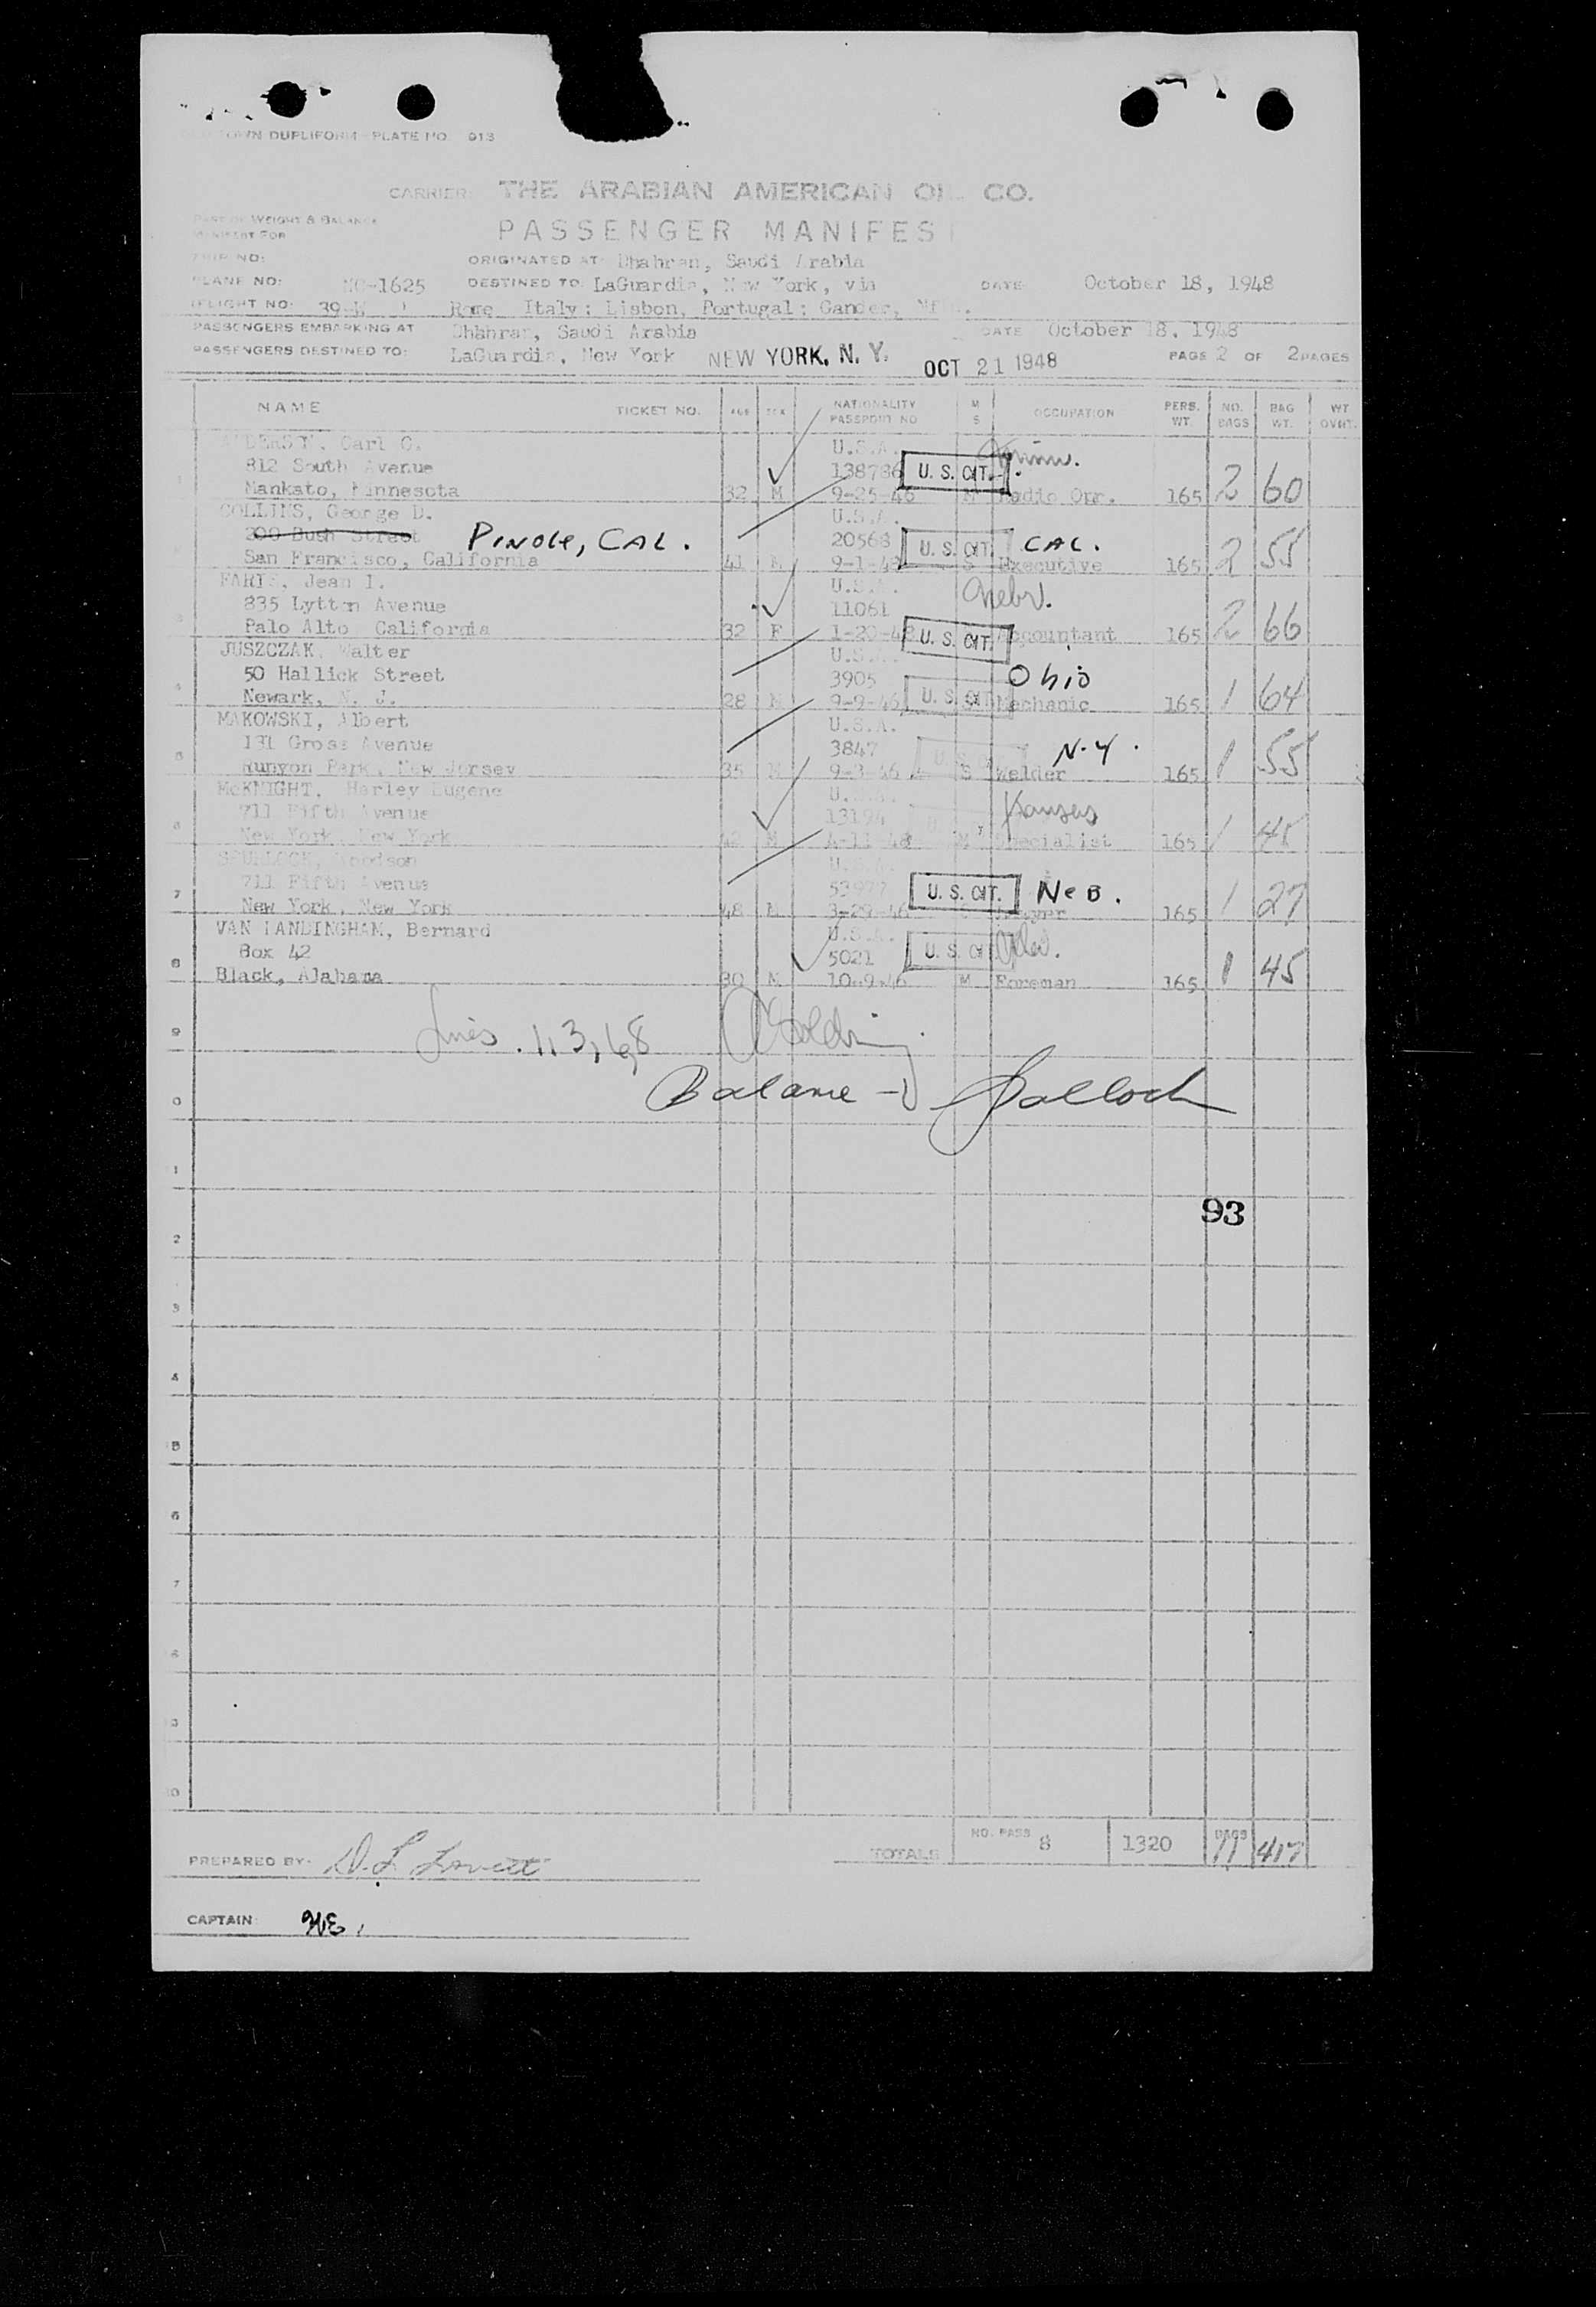 DUPLIFORM PLATE NO. 913
CARRIER: THE ARABIAN AMERICAN OIL CO.
WEIGHT & BALANCE
MANIFEST FOR
PASSENGER MANIFEST
TRIP NO:
ORIGINATED AT: Dhahran, Saudi Arabia
PLANE NO: NC-1625 DESTINED TO: LaGuardia, New York, via DATE: October 18, 1948
FLIGHT NO: 39- Rome, Italy; Lisbon, Portugal; Gander, Nfld.
PASSENGERS EMBARKING AT Dhahran, Saudi Arabia DATE October 18, 1948
PASSENGERS DESTINED TO: LaGuardia, New York NEW YORK, N. Y. OCT 21 1948 PAGE 2 OF 2 PAGES
NAME TICKET NO. AGE SEX NATIONALITY PASSPORT NO M S OCCUPATION PERS. WT. NO. BAGS BAG WT. WT OVWT.
ANDERSON, Carl O. U.S.A. Minn.
812 South Avenue 138736 U. S. CIT.
Mankato, Minnesota 32 M 9-25-46 M Radio Opr. 165 2 60
COLLINS, George D. U.S.A.
200 Bush Street PINOLE, CAL. 20568 U. S. CIT. CAL.
San Francisco, California 41 M 9-1-48 S Executive 165 2 55
FARIS, Jean I. U.S.A. Nebr.
835 Lytton Avenue 11061
Palo Alto California 32 F 1-20-48 U. S. CIT. Accountant 165 2 66
JUSZCZAK, Walter U.S.A.
50 Hallick Street 3905 Ohio
4 Newark, N. J. 28 M 9-9-46 U. S. CIT Mechanic 165 1 64
MAKOWSKI, Albert U.S.A.
131 Gross Avenue 3847 N.Y.
5 Runyon Park, New Jersey 35 M 9-3-46 S Welder 165 1 55
McKNIGHT, Harley Eugene U.S.A.
711 Fifth Avenue 13194 Kansas
6 New York, New York 42 M 4-11-48 M Specialist 165 1 45
SPURLOCK, Woodson U.S.A.
711 Fifth Avenue U. S. CIT. NEB.
7 New York, New York 48 M 3-29-46 Lawyer 165 1 27
VAN LANDINGHAM, Bernard U.S.A.
Box 42 5021 U. S. CIT
8 Black, Alabama 30 M 10-9-46 M Foreman 165 1 45
Lines. 1, 3, 6, 8
9
Balance -
0
1
93
2
3
4
5
6
7
8
9
0
TOTALS NO. PASS 8 1320 BAGS 11 417
PREPARED BY: D. L. Lovett
CAPTAIN: